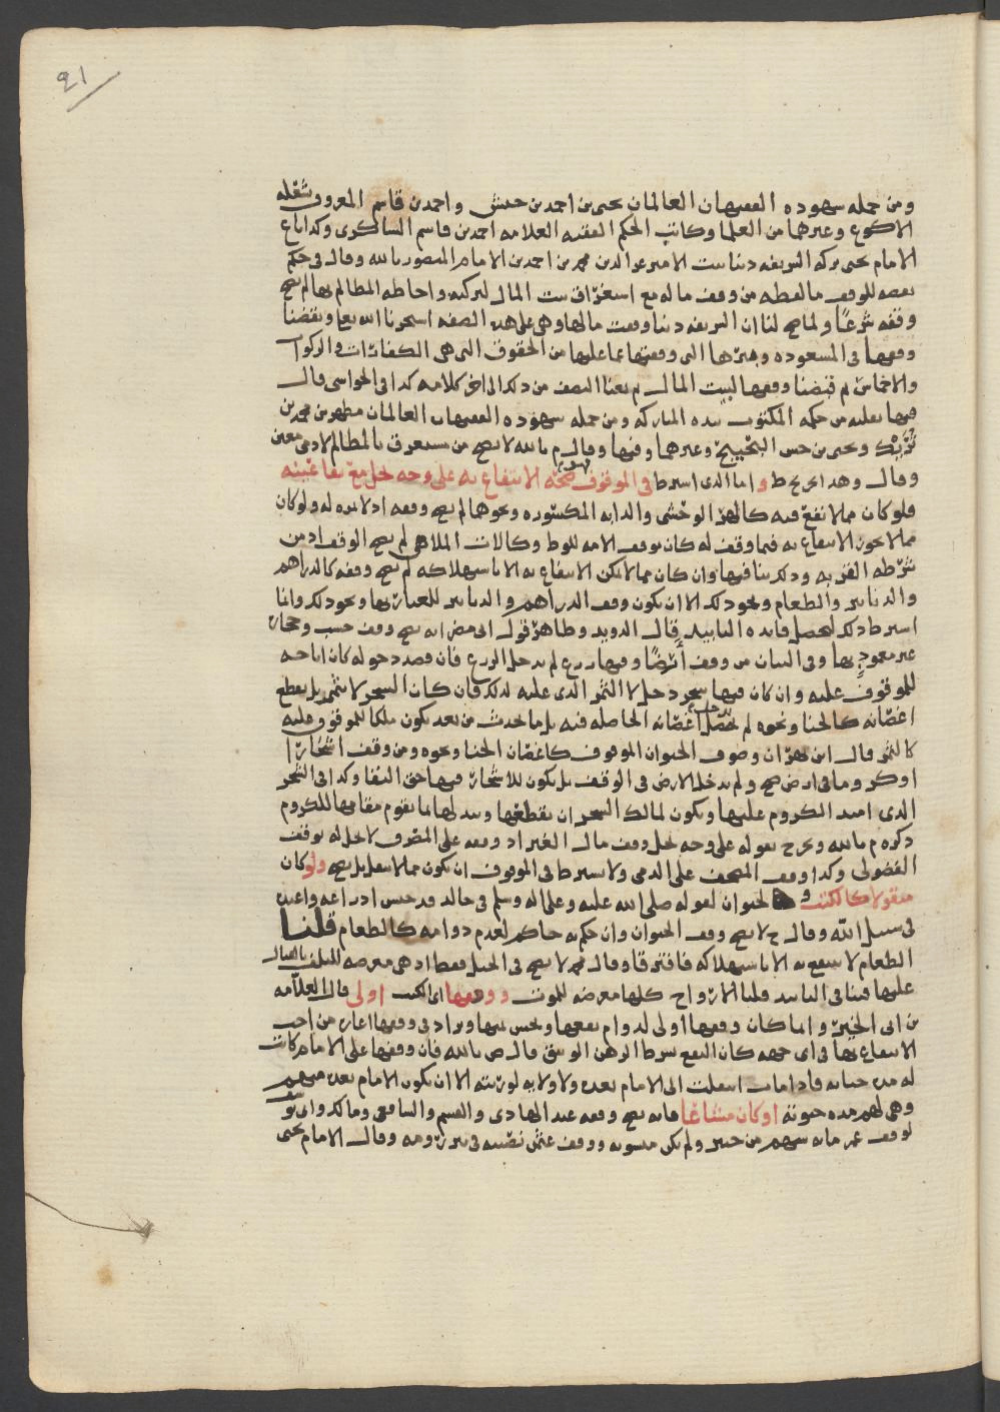 ٩١
ومن جمله سهوده الفقيهان العالمان يحيى بن احمد بن حنش واحمد بن قاسم المعروف شعله
الاكوع وغيرهما من العلما وكاتب الحكم الفقيه العلامه احمد بن قاسم الشاكرى وكذا باع
الامام يحيى بركه الشريفه دنيا بنت الامير عز الدين محمد بن احمد بن الامام المنصور بالله وقال فى حكم
نقصه للوقف ما لفظه من وقف ماله مع استغراق بيت المال لتركته واحاطه المظالم بها لم يصح
وقفه شرعًا ولما صح لنا ان الشريفه دنيا وقفت مالها وهى على هذه الصفه استخرنا الله تعالى ونقضنا
وقفها فى المسعوده وغيرها التى وقفتها عما عليها من الحقوق التى هى الكفارات والزكوات
والاخماس ثم قبضنا وقفها لبيت المال ثم بعنا النصف من ذلك الى اخر كلامه كذا فى الحواشى قال
فيها نقلته من حكمه المكتوب بيده المباركه ومن جمله سهوده الفقيهان العالمان مطهر بن محمد بن
تريك ويحيى بن حسن البحيبح وغيرهما وفيها وقال م بالله لا يصح من مستغرق بالمظالم لادمى معين
وقال وهذا تخريج ط واما الذى اشترط فى الموقوف فهو صحه الانتفاع به على وجه يحل مع بقا عينه
فلو كان مما لا نفع فيه كالهر الوحشى والدابه المكسوره ونحوهما لم يصح وقفه اذ لا ثمره له ولو كان
مما لا يجوز الانتفاع به فيما وقف له كان يوقف الامه للوطء وكالات الملاهى لم يصح الوقف اذ من
شرطه القربه وذلك ينافيها وان كان مما لا يمكن الانتفاع به الا باستهلاكه لم يصح وقفه كالدراهم
والدنانير والطعام ونحو ذلك الا ان يكون وقف الدراهم والدنانير للعيار بها ونحو ذلك وانما
اشترط ذلك لتحصل فايده التابيد قال الدويد وظاهر قول ابى مضر انه يصح وقف خشب وحجاره
غير معمور بها وفى البيان من وقف أرضًا وفيها زرع لم يدخل الزرع فان قصد دخوله كان اباحه
للموقوف عليه وان كان فيها شجر دخل لا الثمر الذى عليه لذلك فان كان الشجر لا يثمر بل يقطع
اغصانه كالحنا ونحوه لم تدخل اغصانه الحاصله فيه بل ما يحدث من بعد يكون ملكا للموقوف عليه
كالثمر قال ابن بهران وصوف الحيوان الموقوف كاغصان الحنا ونحوه ومن وقف اشجارًا
او كرو ما فى ارض صح ولم تدخل الارض فى الوقف بل يكون للاشجار فيها حق البقا وكذا فى الشجر
الذى امتد الكروم عليها ويكون لمالك الشجر ان يقطعها ويبدلها بما يقوم مقامها للكروم
ذكره م بالله ويخرج بقوله على وجه يحل وقف مال الغير اذ وقفه على المصرف لا يحل له بوقف
الفضولى وكذا وقف المصحف على الذمى ولا يشترط فى الموقوف ان يكون مما لا ينقل بل يصح ولو كان
منقولا كالكتب و الحيوان لقوله صلى الله عليه وعلى اله وسلم فى خالد قد حبس ادراعه واعبده
فى سبيل الله وقال ح لا يصح وقف الحيوان وان حكم به حاكم لعدم دوامه كالطعام قلنا
الطعام لا ينتفع به الا باستهلاكه فافترقا وقال محمد لا يصح فى الخيل فقط اذ هى معرضه للتلف بالقتال
عليها فينافى التابيد قلنا الارواح كلها معرضه للموت ووقفها اى الكتب اولى قال العلامه
بن ابى الخير وانما كان وقفها اولى لدوام نفعها وتحبس عينها ويراد فى وقفها اعاره من احب
الانتفاع بها فى اى جهه كان النفع بشرط الرهن الوثيق قال ص بالله فان وقفها على الامام كانت
له مده حياته فاذا مات انتقلت الى الامام بعده ولا ولايه لورثته الا ان يكون الامام بعده منهم
وهى لهم مده حيوته او كان مشاعا فانه يصح وقفه عند الهادى والقسم والشافعى ومالك وابى يوسف
لوقف عمر مائه سهم من خيبر ولم تكن مقسومه ووقف عثمن نصيبه فى بئر رومه وقال الامام يحيى